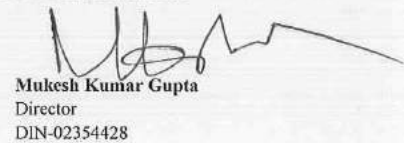 Mukesh Kumar Gupta
Director
DIN-02354428